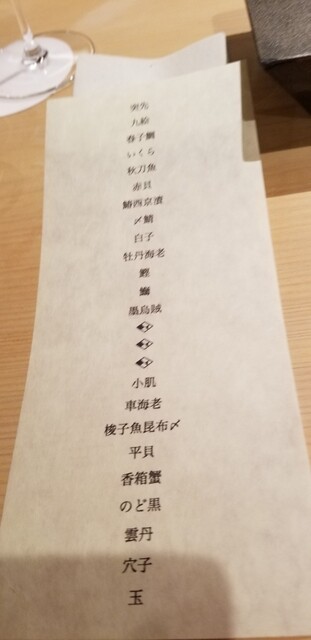 突先
九絵
春子鯛
いくら
秋刀魚
赤貝
鰆西京漬
〆鯖
白子
牡丹海老
鰹
鰤
墨烏賊
小肌
車海老
梭子魚昆布〆
平貝
香箱蟹
のど黒
雲丹
穴子
玉